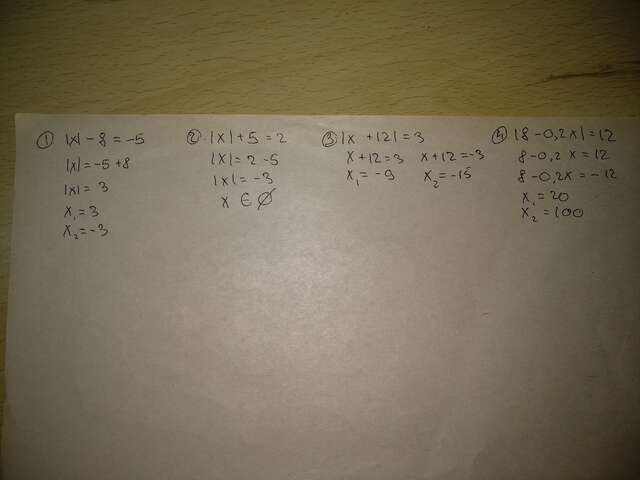 ① |x| - 8 = -5
|x| = -5 + 8
|x| = 3
x₁ = 3
x₂ = -3
② |x| + 5 = 2
|x| = 2 - 5
|x| = -3
x ∈ ∅
③ |x + 12| = 3
x + 12 = 3 x + 12 = -3
x₁ = -9 x₂ = -15
④ |8 - 0,2x| = 12
8 - 0,2x = 12
8 - 0,2x = -12
x₁ = 20
x₂ = 100